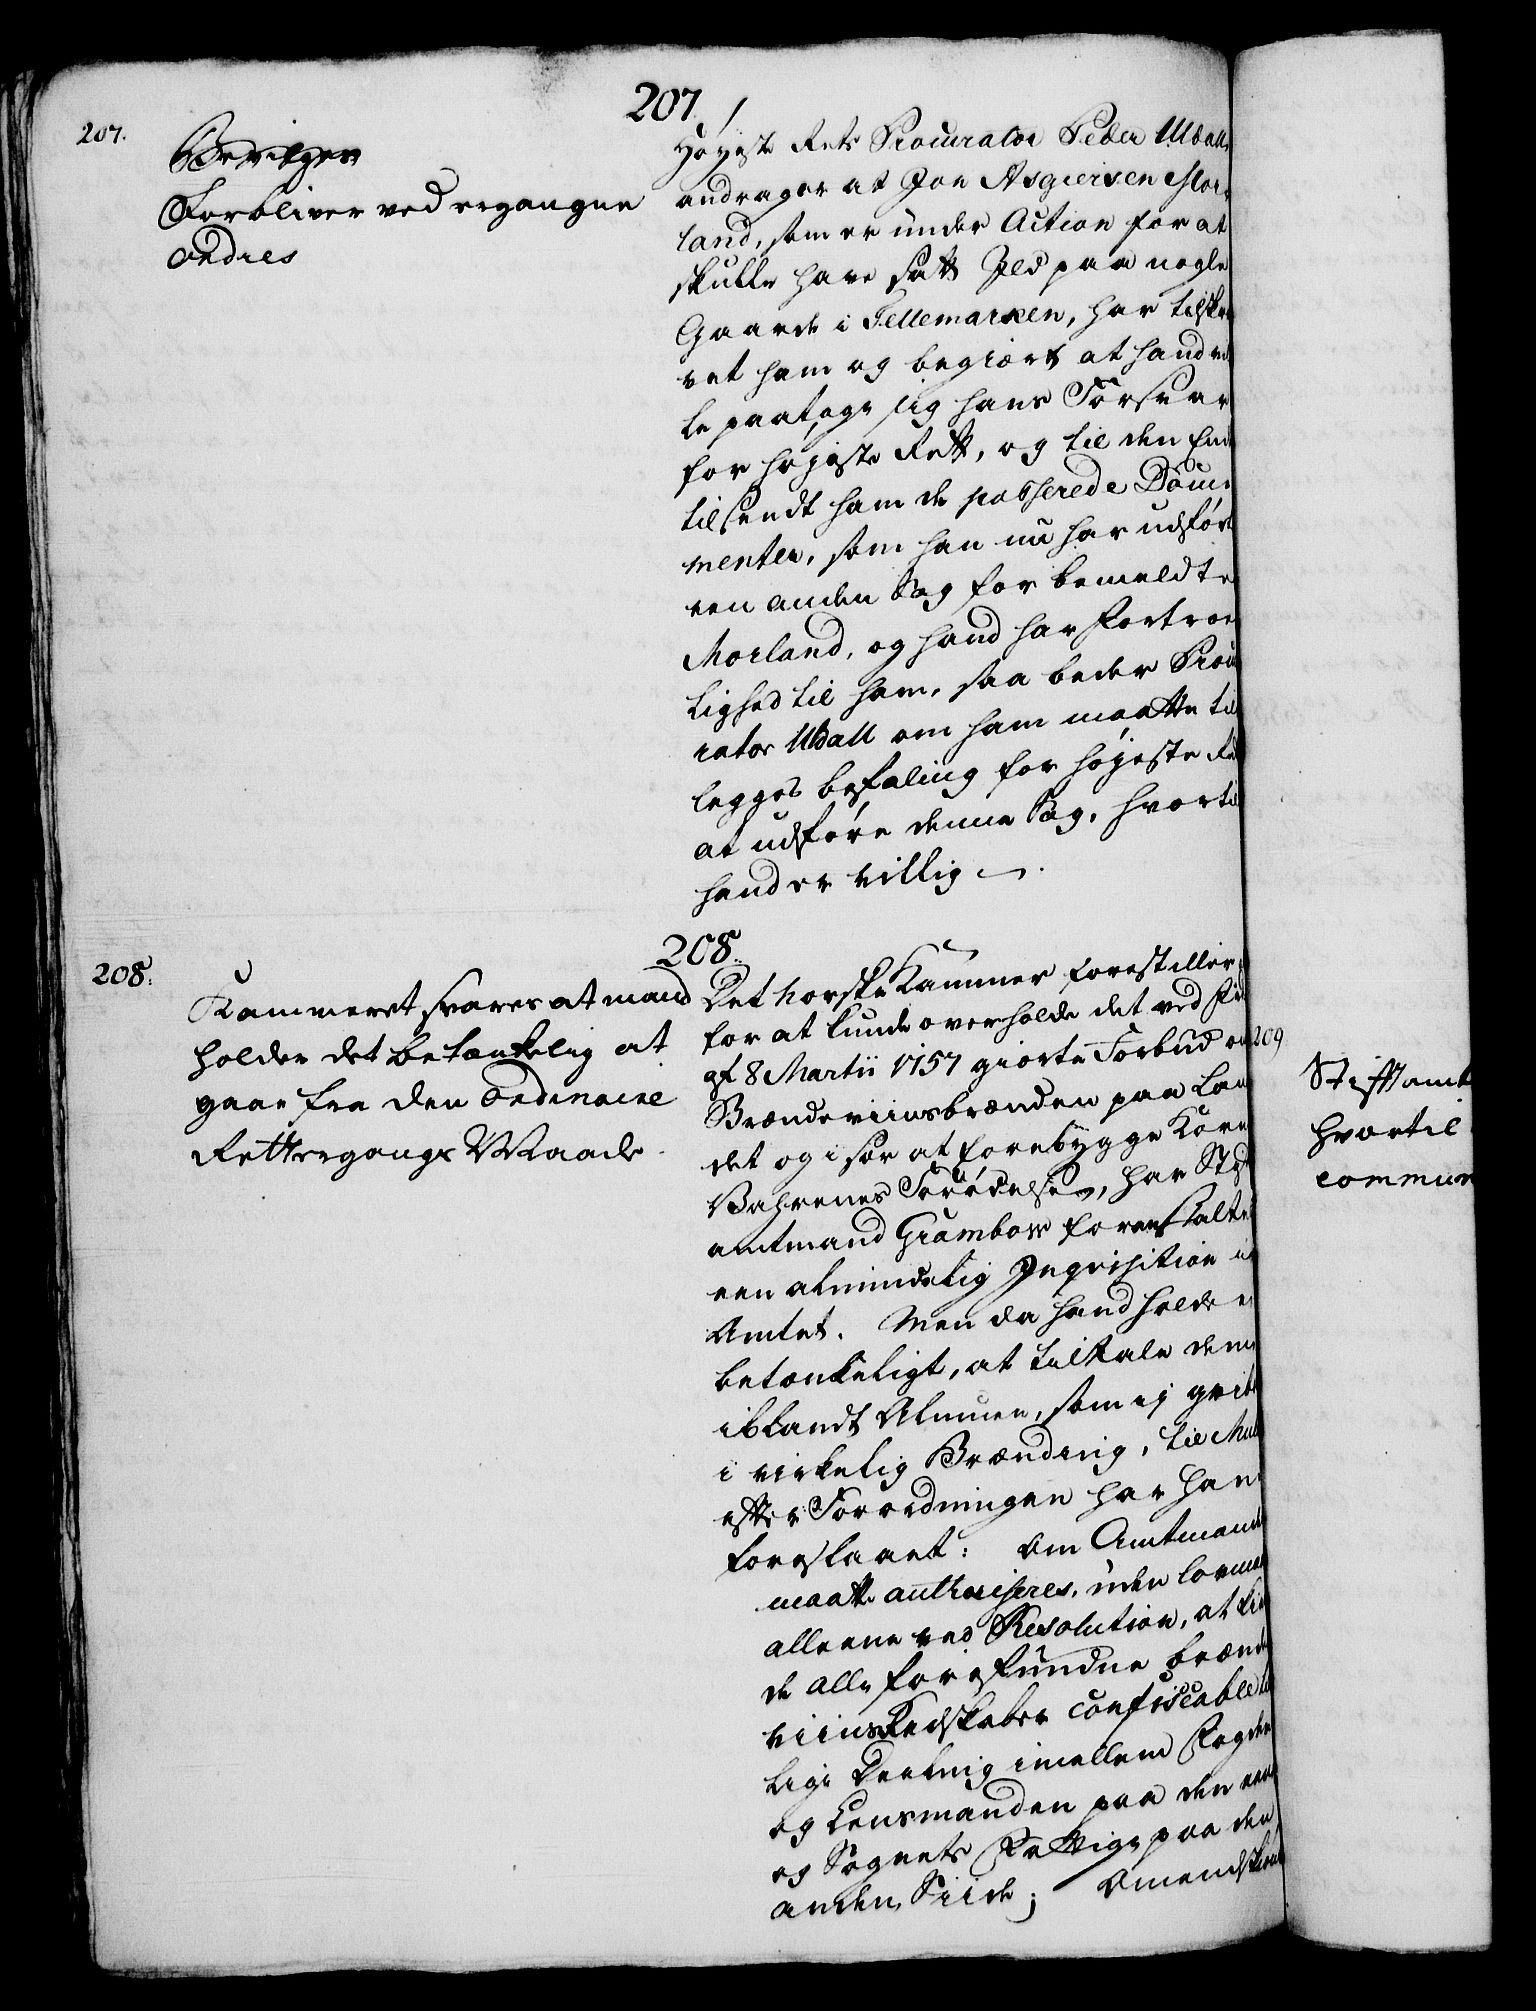 207
207.
Bevilges
Forbliver ved ergangne
ordres
Høyeste Rets Procurator Peder Uldall
andrager at Jon Asgiersen Mor¬
land, som er under Action for at
skulle have satt Ild paa nogle
Gaarde i Tellemarken, har tilskre
vet ham og begiært at hand vil
le paatage sig hans Forsvar
for høyeste Rett, og til den Ende
tilsendt ham de passerede Docu¬
menter, som han nu har udført
een anden Sag for bemeldte
Morland, og hand har Fortroe
lighed til ham, saa beder Procu
rator Uldall om ham maatte til
legges befaling for høyeste Ret
at udføre denne Sag, hvortil
hand er villig
208
208.
Kammeret svares at mand
holder det betænkelig at
gaae fra den ordinaire
Rettergangs Maade.
Det Norske Kammer forestiller,
for at kunde overholde det ved Fr
af 8 Martii 1757 giorte Forbud om
Brændeviinsbrænden paa Lan
det og i sær at forebygge Korn
Vahrenes Forødelse, har Stift
amtmand Grambow foranstaltet
een almindelig Inqvisition i
Amtet. Men da hand holder
betænkeligt, at tiltale dem
iblandt Almuen, som ej gribes
i virkelig Brænding, til Mulct
efter Forordningen har hand
foreslaaet: om Amtmanden
maatte authoriseres, uden lovmaal
alleene ved Resolution, at kien
de alle forefundne brænde
viinsRedskaber confiscable til
lige Deeling imellem Fogden
og Lensmanden paa den eene
og Sognets Fattige paa den
anden Siide; Omendskiønt
209
Stiftamt
hvortil
commun